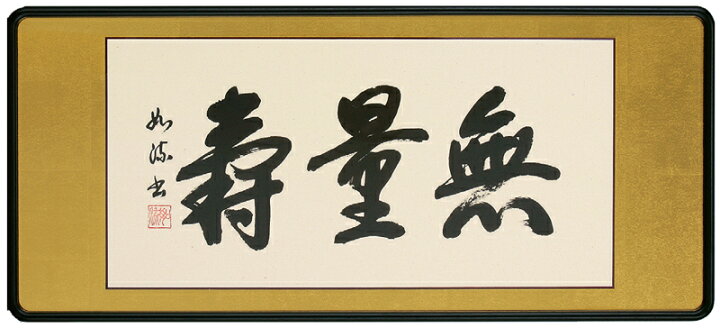 無量壽
如流書